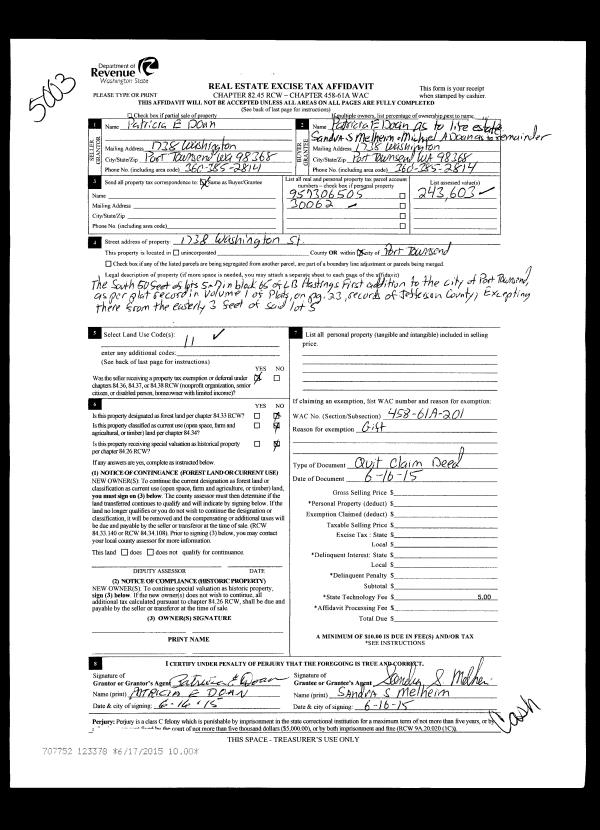 5003
Department of
Revenue
Washington State
PLEASE TYPE OR PRINT
REAL ESTATE EXCISE TAX AFFIDAVIT
CHAPTER 82.45 RCW – CHAPTER 458-61A WAC
This form is your receipt
when stamped by cashier.
THIS AFFIDAVIT WILL NOT BE ACCEPTED UNLESS ALL AREAS ON ALL PAGES ARE FULLY COMPLETED
(See back of last page for instructions)
Check box if partial sale of property
If multiple owners, list percentage of ownership next to name.
1 Name Patricia E Doan
SELLER GRANTOR
Mailing Address 1738 Washington
City/State/Zip Port Townsend WA 98368
Phone No. (including area code) 360-385-2814
2 Name Patricia E Doan as to life estate
Sandra S Melheim + Michael A Doan as to remainder
BUYER GRANTEE
Mailing Address 1738 Washington
City/State/Zip Port Townsend WA 98368
Phone No. (including area code) 360-385-2814
3 Send all property tax correspondence to: Same as Buyer/Grantee
Name
Mailing Address
City/State/Zip
Phone No. (including area code)
List all real and personal property tax parcel account
numbers – check box if personal property
957306505
30062
List assessed value(s)
243,603
4 Street address of property: 1738 Washington St.
This property is located in unincorporated County OR within city of Port Townsend
Check box if any of the listed parcels are being segregated from another parcel, are part of a boundary line adjustment or parcels being merged.
Legal description of property (if more space is needed, you may attach a separate sheet to each page of the affidavit)
The South 50 feet of lots 5 & 7 in block 65 of LB Hastings First addition to the city of Port Townsend,
as per plat record in Volume 1 of Plats, on pg. 23, records of Jefferson County; Excepting
there from the easterly 3 feet of said lot 5
5 Select Land Use Code(s):
11
enter any additional codes:
(See back of last page for instructions)
YES NO
Was the seller receiving a property tax exemption or deferral under
chapters 84.36, 84.37, or 84.38 RCW (nonprofit organization, senior
citizen, or disabled person, homeowner with limited income)?
6
YES NO
Is this property designated as forest land per chapter 84.33 RCW?
Is this property classified as current use (open space, farm and
agricultural, or timber) land per chapter 84.34?
Is this property receiving special valuation as historical property
per chapter 84.26 RCW?
If any answers are yes, complete as instructed below.
(1) NOTICE OF CONTINUANCE (FOREST LAND OR CURRENT USE)
NEW OWNER(S): To continue the current designation as forest land or
classification as current use (open space, farm and agriculture, or timber) land,
you must sign on (3) below. The county assessor must then determine if the
land transferred continues to qualify and will indicate by signing below. If the
land no longer qualifies or you do not wish to continue the designation or
classification, it will be removed and the compensating or additional taxes will
be due and payable by the seller or transferor at the time of sale. (RCW
84.33.140 or RCW 84.34.108). Prior to signing (3) below, you may contact
your local county assessor for more information.
This land does does not qualify for continuance.
DEPUTY ASSESSOR DATE
(2) NOTICE OF COMPLIANCE (HISTORIC PROPERTY)
NEW OWNER(S): To continue special valuation as historic property,
sign (3) below. If the new owner(s) does not wish to continue, all
additional tax calculated pursuant to chapter 84.26 RCW, shall be due and
payable by the seller or transferor at the time of sale.
(3) OWNER(S) SIGNATURE
PRINT NAME
7 List all personal property (tangible and intangible) included in selling
price.
If claiming an exemption, list WAC number and reason for exemption:
WAC No. (Section/Subsection) 458-61A-201
Reason for exemption Gift
Type of Document Quit Claim Deed
Date of Document 6-16-15
Gross Selling Price $
*Personal Property (deduct) $
Exemption Claimed (deduct) $
Taxable Selling Price $
Excise Tax : State $
Local $
*Delinquent Interest: State $
Local $
*Delinquent Penalty $
Subtotal $
*State Technology Fee $ 5.00
*Affidavit Processing Fee $
Total Due $
A MINIMUM OF $10.00 IS DUE IN FEE(S) AND/OR TAX
*SEE INSTRUCTIONS
8 I CERTIFY UNDER PENALTY OF PERJURY THAT THE FOREGOING IS TRUE AND CORRECT.
Signature of
Grantor or Grantor's Agent Patricia E Doan
Name (print) PATRICIA E DOAN
Date & city of signing: 6-16-15
Signature of
Grantee or Grantee's Agent Sandra S. Melheim
Name (print) Sandra S Melheim
Date & city of signing: 6-16-15
Cash
Perjury: Perjury is a class C felony which is punishable by imprisonment in the state correctional institution for a maximum term of not more than five years, or by
the court of not more than five thousand dollars ($5,000.00), or by both imprisonment and fine (RCW 9A.20.020 (1C)).
THIS SPACE - TREASURER'S USE ONLY
707752 123378 *6/17/2015 10.00*